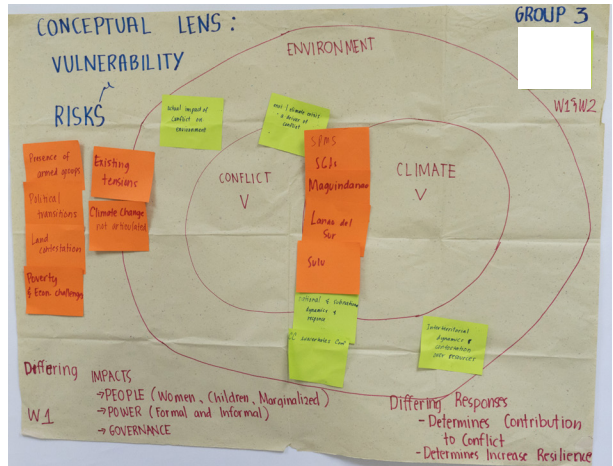 CONCEPTUAL LENS:
VULNERABILITY
RISKS
GROUP 3
W1&W2
ENVIRONMENT
actual impact of
conflict on
environment
climate crisis
a driver of
conflict
Presence of
armed groups
Existing
tensions
Political
transitions
Climate Change
not articulated
Land
contestation
Poverty
& Econ. challenges
CONFLICT
V
CLIMATE
V
SPMS
SGAs
Maguindanao
Lanao del
Sur
Sulu
dynamics &
response
Inter-territorial
dynamics &
contestation
over resources
Differing
W1
IMPACTS
→PEOPLE (Women, Children, Marginalized)
→POWER (Formal and Informal)
→GOVERNANCE
Differing Responses
-Determines Contribution
to Conflict
-Determines Increase Resilience